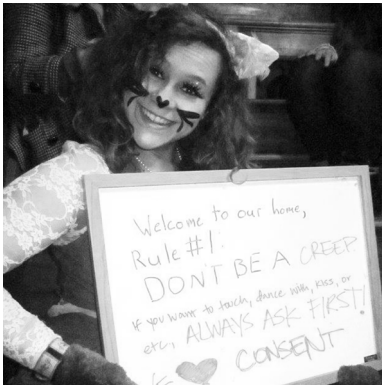 Welcome to our home,
Rule #1:
DON'T BE A CREEP
If you want to touch, dance with, kiss, or
etc, ALWAYS ASK FIRST!
CONSENT